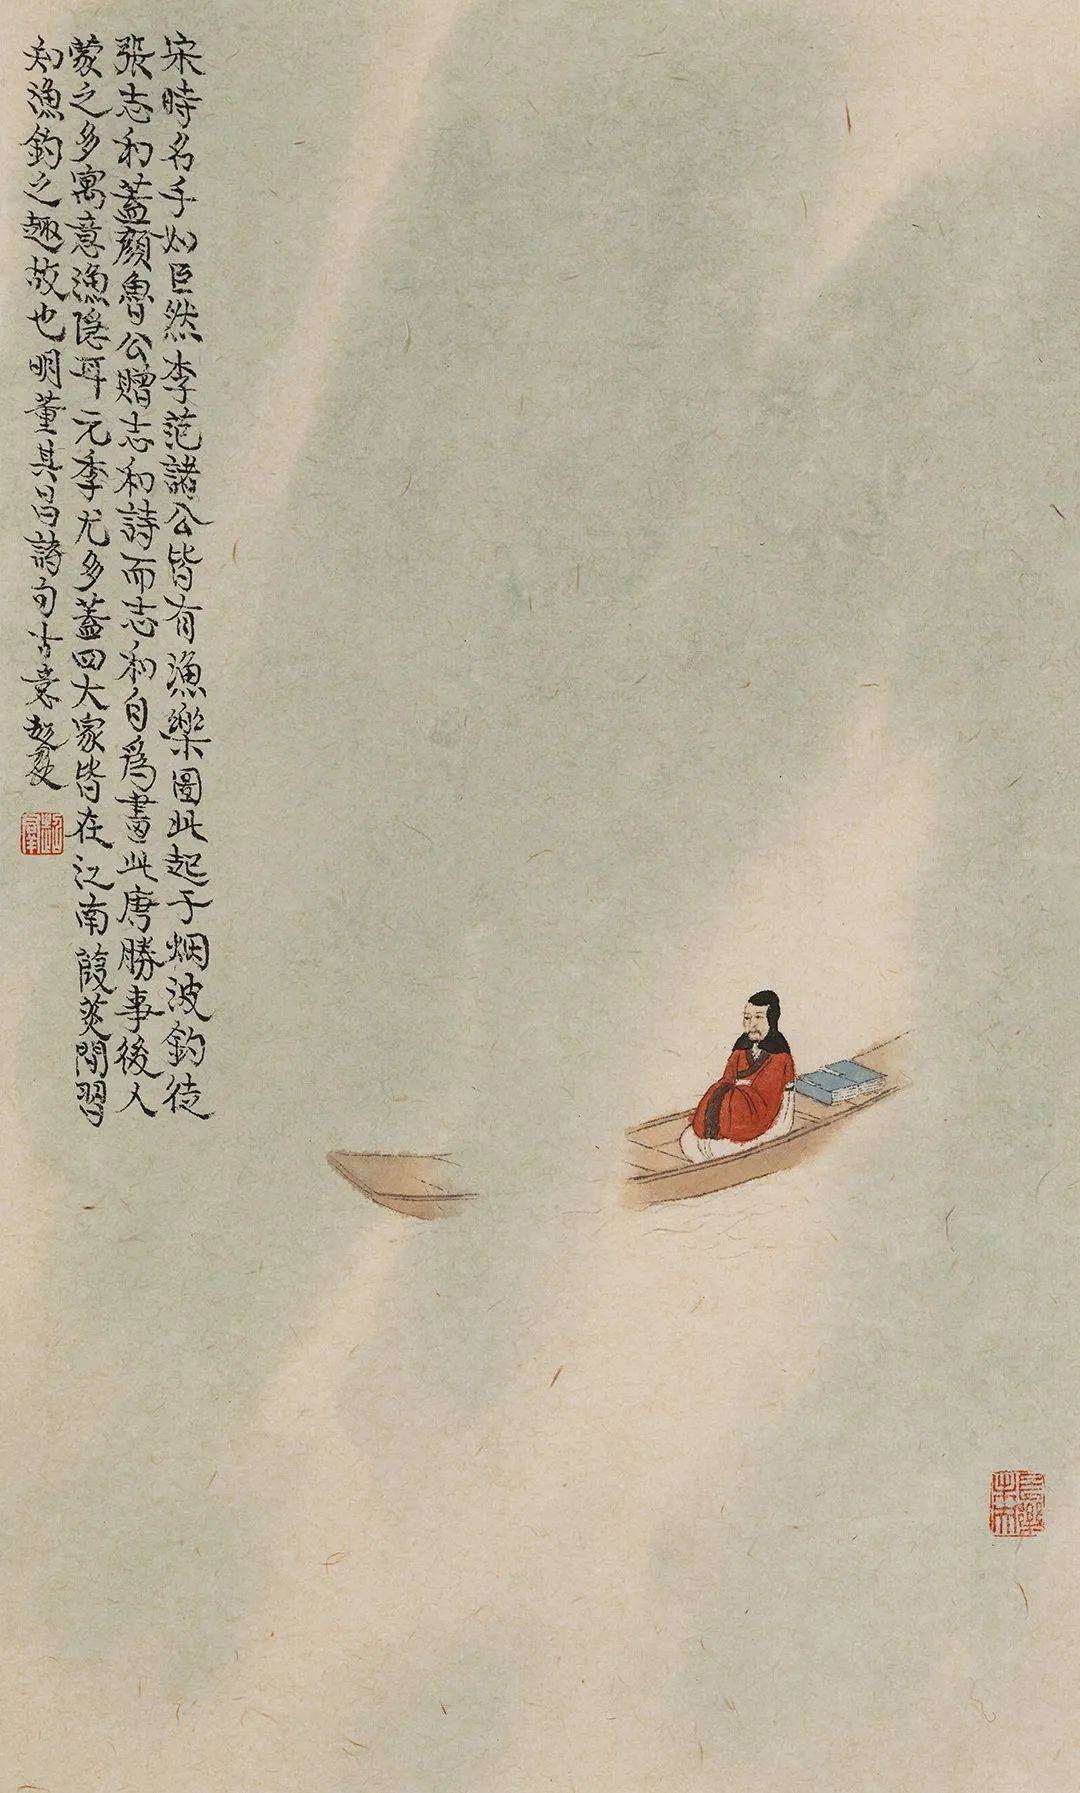 宋時名手如巨然李范諸公皆有漁樂圖此起于烟波釣徒
張志和蓋顏魯公贈志和詩而志和自爲畫此唐勝事後人
蒙之多寓意漁隐耳元季尤多蓋四大家皆在江南葭菼間習
知漁釣之趣故也明董其昌詩句古意
長樂未央